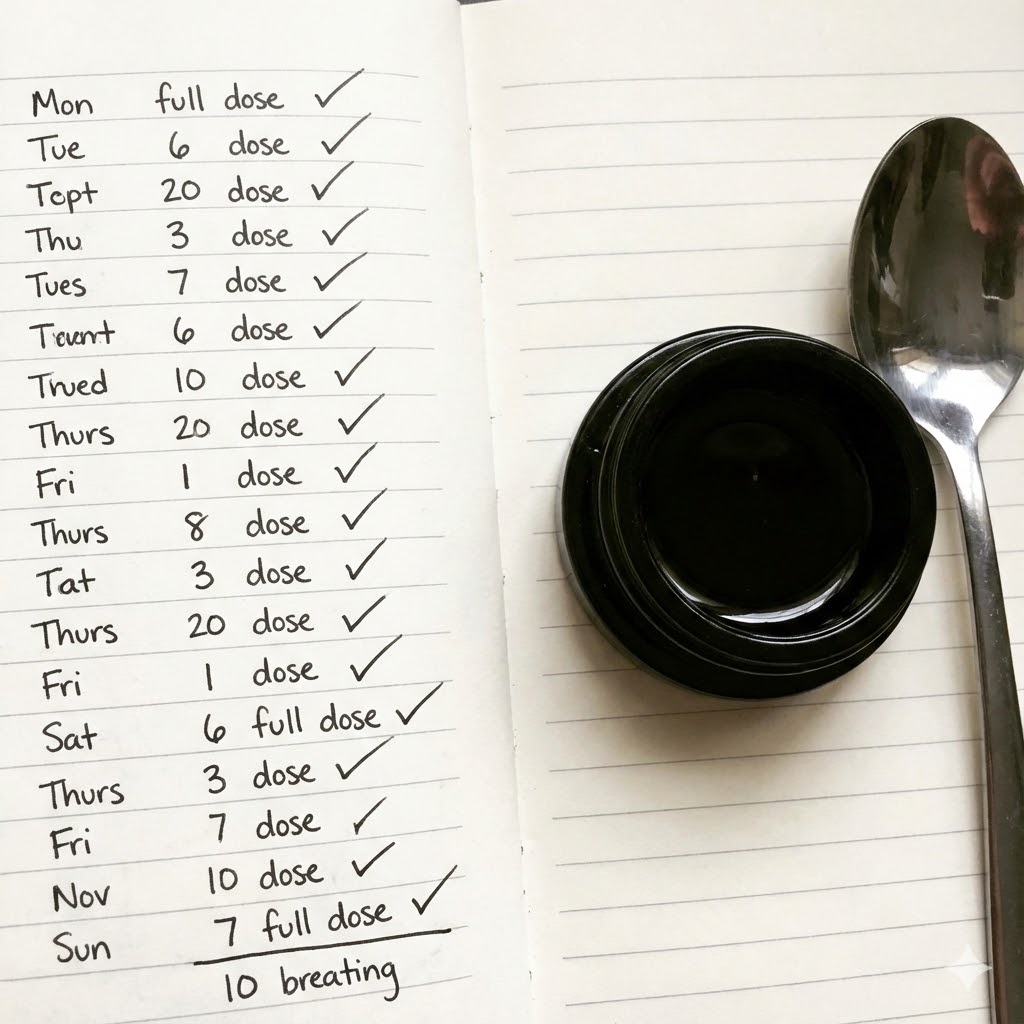 Mon full dose ✓
Tue 6 dose ✓
Tcpt 20 dose ✓
Thu 3 dose ✓
Tues 7 dose ✓
6 dose ✓
Trued 10 dose ✓
Thurs 20 dose ✓
Fri 1 dose ✓
Thurs 8 dose ✓
Tat 3 dose ✓
Thurs 20 dose ✓
Fri 1 dose ✓
Sat 6 full dose ✓
Thurs 3 dose ✓
Fri 7 dose ✓
Nov 10 dose ✓
Sun 7 full dose ✓
10 breating